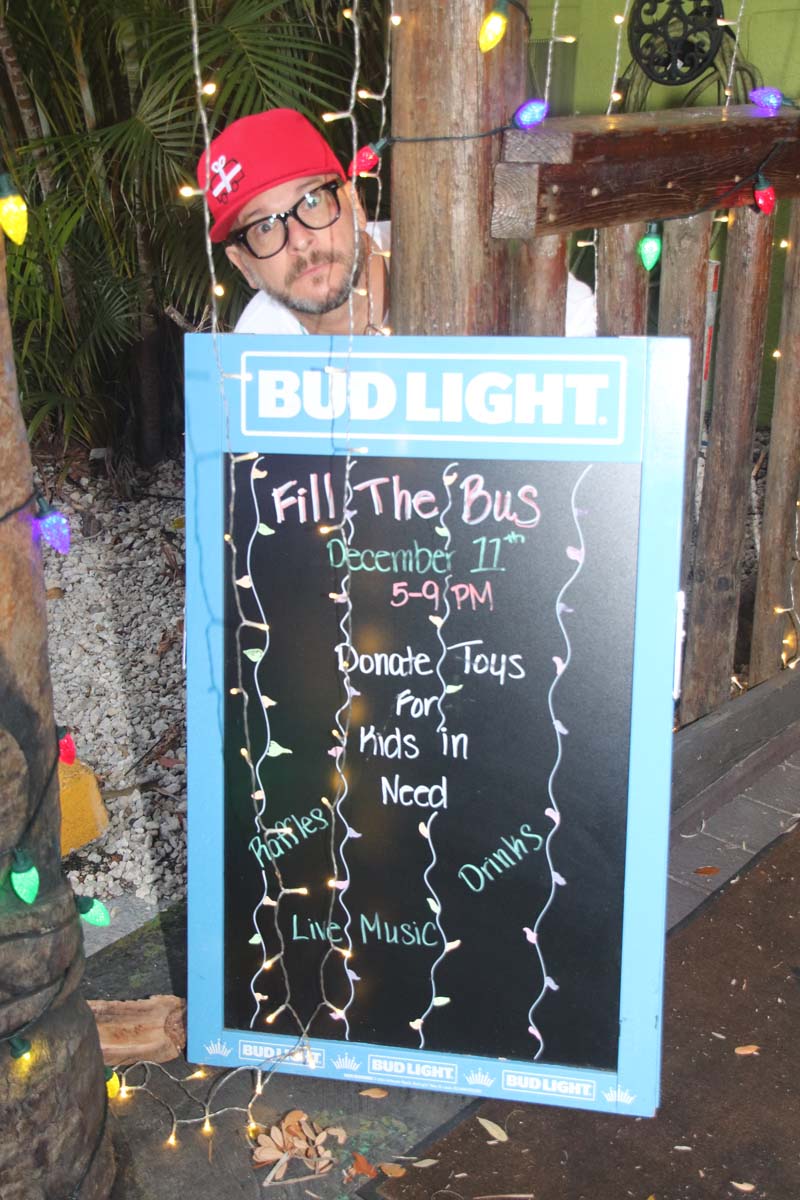 BUD LIGHT.
Fill The Bus
December 11th
5-9 PM
Donate Toys
For
Kids in
Need
Raffles
Drinks
Live Music
BUD LIGHT.
BUD LIGHT.
BUD LIGHT.